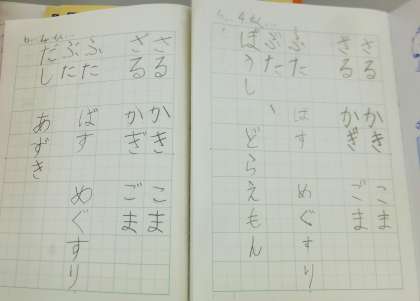 さる かき こま
ざる かぎ ごま
ふた はす めぐすり
ぶた
ぼうし、どらえもん
さる かき こま
ざる かぎ ごま
ふた ばす めぐすり
ぶた
だし あずき